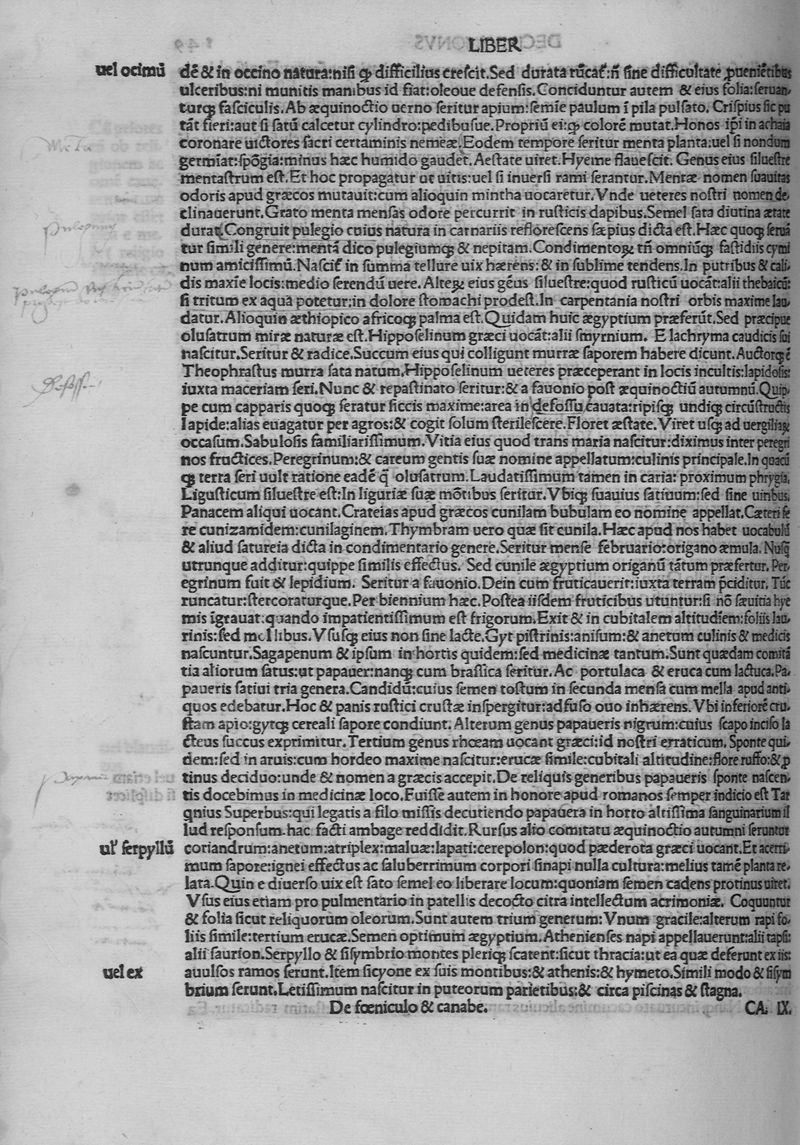 LIBER
uel ocimū
dē & in occino natura:nisi ꝙ difficilius crescit.Sed durata rūcat͛:nō sine difficultate ꝓueniētibus
ulceribus:ni munitis manibus id fiat:oleoue defensis.Conciduntur autem & eius folia:seruan-
turqꝫ fasciculis.Ab æquinoctio uerno seritur apium:semīe paulum ī pila pulsato.Crispius sic pu
tāt fieri:aut si satū calcetur cylindro:pedibusue.Propriū ei:ꝙ colorē mutat.Honos ip̄i in achaia
coronare uictores sacri certaminis nemeæ.Eodem tempore seritur menta planta:uel si nondum
germīat:spōgia:minus hæc humido gaudet.Aestate uiret.Hyeme flauescit. Genus eius siluestre
mentastrum est.Et hoc propagatur ut uitis:uel si inuersi rami serantur.Mentæ nomen suauitas
odoris apud græcos mutauit:cum alioquin mintha uocaretur.Vnde ueteres nostri nomen de-
clinauerunt.Grato menta mensas odore percurrit in rusticis dapibus.Semel sata diutina ætate
durat.Congruit pulegio cuius natura in carnariis reflorescens sæpius dicta est.Hæc quoqꝫ seruā
tur simili genere:mentā dico pulegiumqꝫ & nepitam.Condimentoꝝ tn̄ omniūqꝫ fastidiis cymi
num amicissimū.Nascit͛ in summa tellure uix hærens:& in sublime tendens.In putribus & cali-
dis maxīe locis:medio serendū uere. Alteꝝ eius gēus siluestre:quod rusticū uocāt:alii thebaicū:
si tritum ex aqua potetur:in dolore stomachi prodest.In carpentania nostri orbis maxime lau
datur.Alioquin æthiopico africoqꝫ palma est.Quidam huic ægyptium præferūt.Sed præcipue
olusatrum miræ naturæ est.Hipposelinum græci uocāt:alii smyrnium. E lachryma caudicis sui
nascitur.Seritur & radice.Succum eius qui colligunt murræ saporem habere dicunt.Auctorqꝫ ē
Theophrastus murra sata natum.Hipposelinum ueteres præceperant in locis incultis:lapidosis:
iuxta maceriam seri.Nunc & repastinato seritur:& a fauonio post æquinoctiū autumnū.Quip-
pe cum capparis quoqꝫ seratur siccis maxime:area in defossū cauata:ripisqꝫ undiqꝫ circūstructis
lapide:alias euagatur per agros:& cogit solum sterilescere.Floret æstate.Viret usqꝫ ad uergiliaꝝ
occasum.Sabulosis familiarissimum.Vitia eius quod trans maria nascitur:diximus inter peregri
nos fructices.Peregrinum:& careum gentis suæ nomine appellatum:culinis principale.In quacū
qꝫ terra seri uult ratione eadē q̄ olusatrum.Laudatissimum tamen in caria: proximum phrygia.
Ligusticum siluestre est:In liguriæ suæ mōtibus seritur.Vbiqꝫ suauius satiuum:sed sine uiribus.
Panacem aliqui uocant.Crateias apud græcos cunilam bubulam eo nomine appellat.Cæteri fe
re cunizamidem:cunilaginem.Thymbram uero quæ sit cunila.Hæc apud nos habet uocabulū
& aliud satureia dicta in condimentario genere.Seritur mense februario:origano æmula. Nusqꝫ
utrunque additur:quippe similis effectus. Sed cunile ægyptium origanū tātum præfertur. Per-
egrinum fuit & lepidium. Seritur a fauonio.Dein cum fruticauerit:iuxta terram p̄ciditur. Tūc
runcatur:stercoraturque.Per biennium hæc.Postea iisdem fruticibus utuntur:si nō sæuitia hye
mis īgrauat:quando impatientissimum est frigorum.Exit & in cubitalem altitudiem:foliis lau-
rinis:sed mollibus.Vsusqꝫ eius non sine lacte.Gyt pistrinis:anisum:& anetum culinis & medicis
nascuntur.Sagapenum & ipsum in hortis quidem:sed medicinæ tantum.Sunt quædam comitā
tia aliorum satus:ut papauer:nanqꝫ cum brassica seritur.Ac portulaca & eruca cum lactuca.Pa-
paueris satiui tria genera.Candidū:cuius semen tostum in secunda mensa cum mella apud anti-
quos edebatur.Hoc & panis rustici crustæ inspergitur:adfuso ouo inhærens.Vbi inferiorē cru-
stam apio:gytqꝫ cereali sapore condiunt.Alterum genus papaueris nigrum:cuius scapo inciso la
cteus succus exprimitur.Tertium genus rhœam uocant græci:id nostri erraticum.Sponte qui-
dem:sed in aruis:cum hordeo maxime nascitur:erucæ simile:cubitali altitudine:flore ruffo:& ꝓ
tinus deciduo:unde & nomen a græcis accepit.De reliquis generibus papaueris sponte nascen-
tis docebimus in medicinæ loco.Fuisse autem in honore apud romanos semper indicio est Tar
qnius Superbus:qui legatis a filo missis decutiendo papauera in horto altissima sanguinarium il
lud responsum.hac facti ambage reddidit.Rursus alio comitatu æquinoctio autumni seruntur
ul' serpyllū
coriandrum:anetum:atriplex:maluæ:lapati:cerepolon:quod pæderota græci uocant.Et acerri-
mum sapore:ignei effectus ac saluberrimum corpori sinapi nulla cultura:melius tamē planta re-
lata.Quin e diuerso uix est sato semel eo liberare locum:quoniam semen cadens protinus uiret.
Vsus eius etiam pro pulmentario in patellis decocto citra intellectum acrimoniæ. Coquuntur
& folia sicut reliquorum oleorum.Sunt autem trium generum:Vnum gracile:alterum rapi fo-
liis simile:tertium erucæ.Semen optimum ægyptium.Athenienses napi appellauerunt:alii tapsi:
alii saurion.Serpyllo & sisymbrio montes pleriqꝫ scatent:sicut thracia:ut ea quæ deferunt ex iis:
uel ex
auulsos ramos serunt.Item sicyone ex suis montibus:& athenis:& hymeto.Simili modo & sisym
brium serunt.Letissimum nascitur in puteorum parietibus:& circa piscinas & stagna.
De fœniculo & canabe. CA. IX.